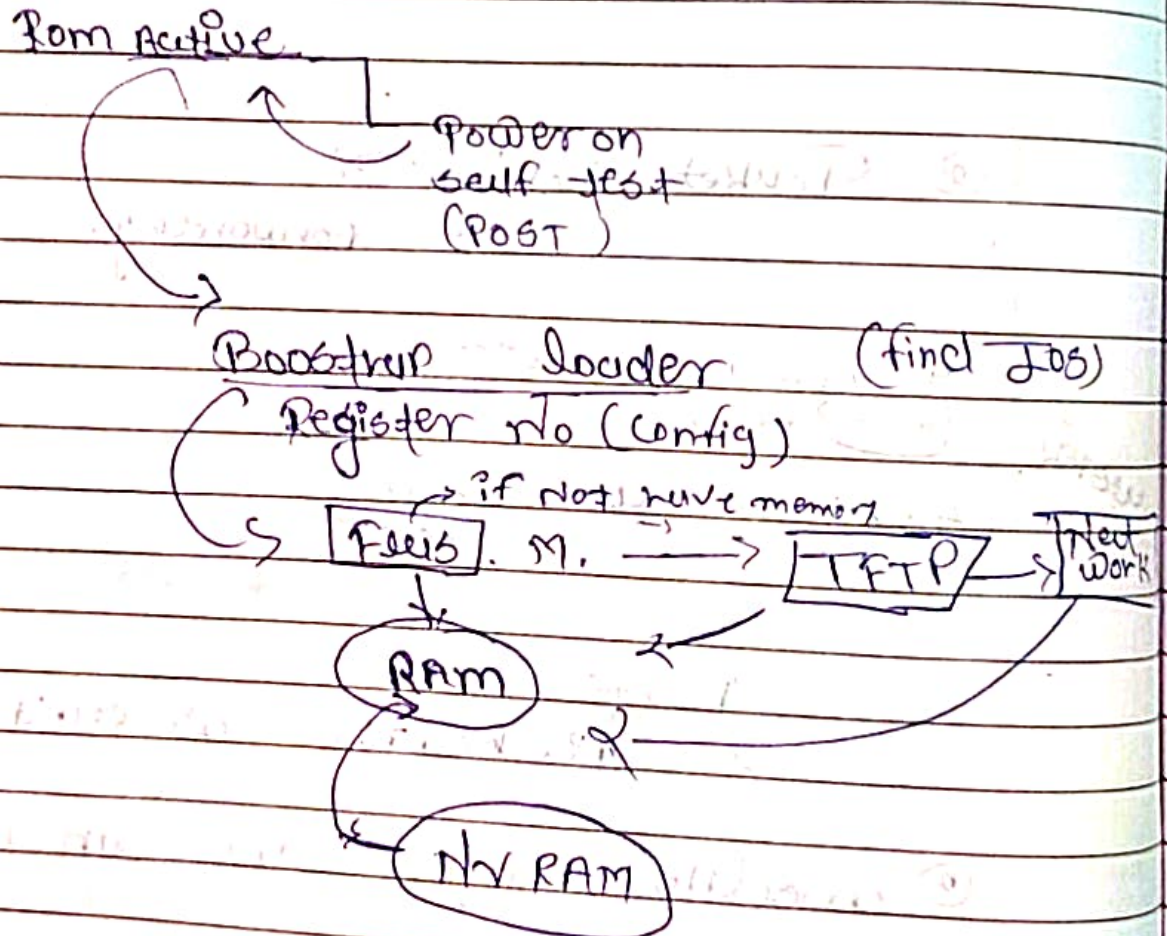 Rom Active
Power on
self test
(POST)
Boostrap loader (find IOS)
Register No (Config)
if Not have memory
Flas . M. TFTP Net
work
RAM
NV RAM